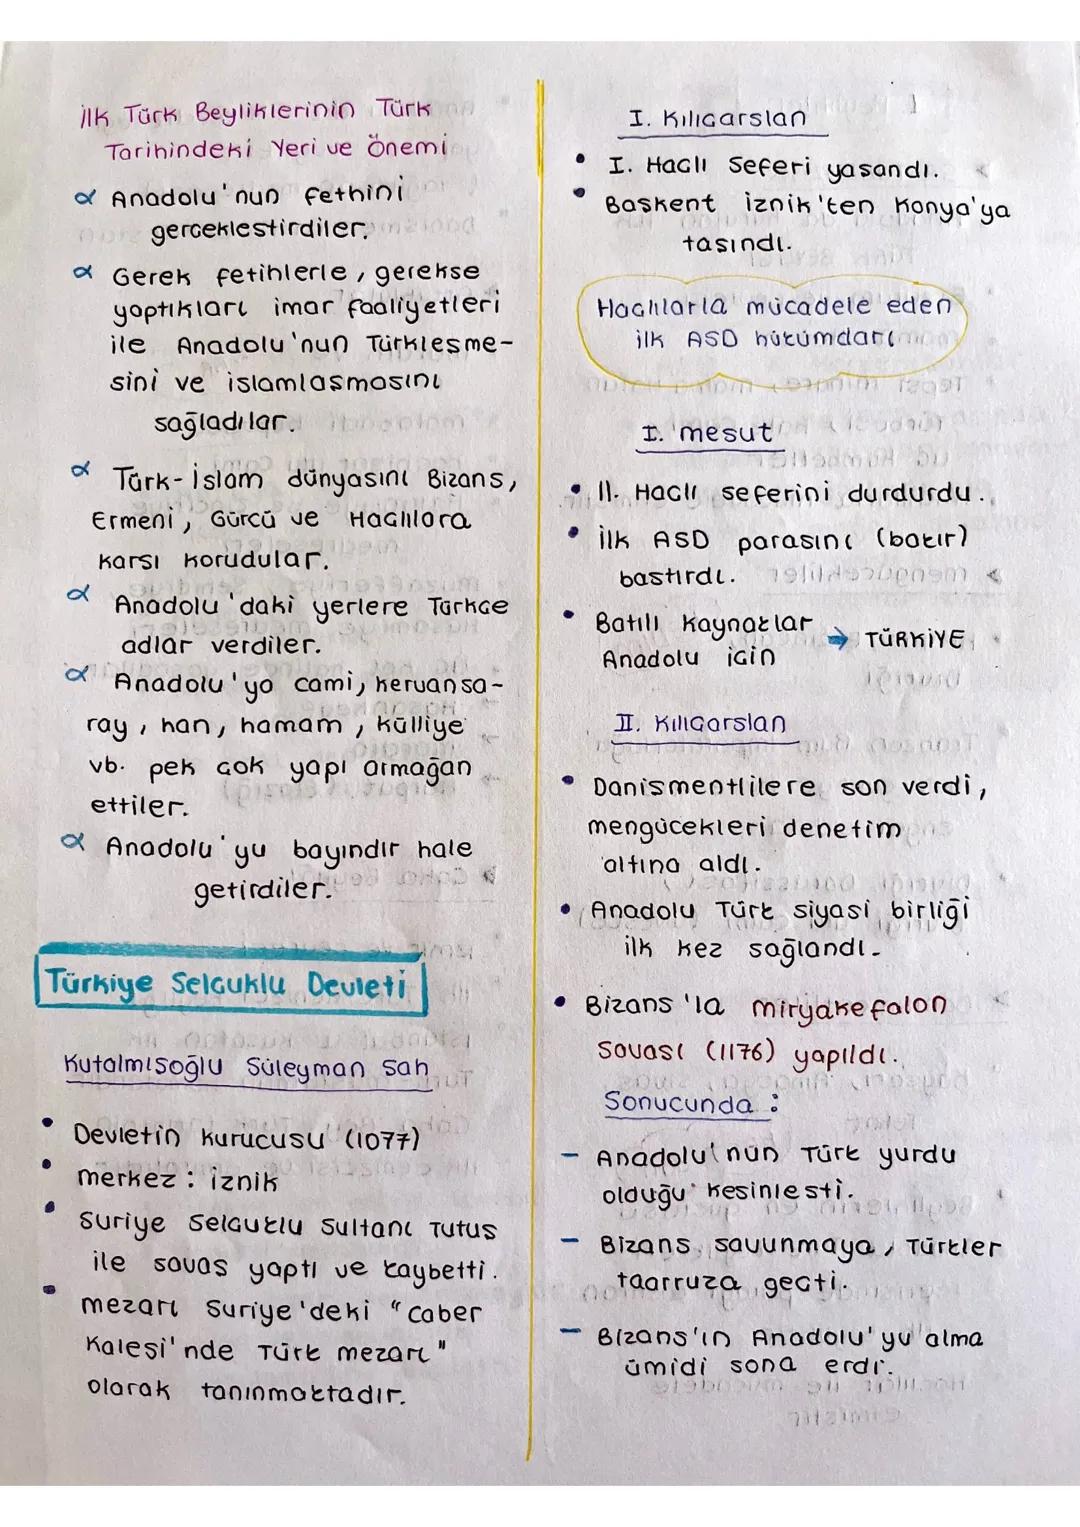 İlk Türk Beyliklerinin Türk
Tarihindeki Yeri ve Önemi
α Anadolu'nun fethini
gerceklestirdiler.
α Gerek fetihlerle, gerekse
yaptıkları imar faaliyetleri
ile Anadolu'nun Türkleşme-
sini ve islamlaşmasını
sağladılar.
α Türk-İslam dünyasını Bizans,
Ermeni, Gürcü ve Haçlılara
karsı korudular.
α Anadolu'daki yerlere Türkçe
adlar verdiler.
α Anadolu'ya cami, kervansa-
ray, han, hamam, külliye
vb. pek çok yapı armağan
ettiler.
α Anadolu'yu bayındır hale
getirdiler.
Türkiye Selçuklu Devleti
Kutalmışoğlu Süleyman Sah
• Devletin kurucusu (1077)
• merkez: iznik
• Suriye Selçuklu Sultanı Tutus
ile savaş yaptı ve kaybetti.
• mezarı Suriye'deki "caber
Kalesi'nde Türk mezarı"
olarak tanınmaktadır.
I. Kılıçarslan
• I. Haçlı Seferi yaşandı.
• Başkent iznik'ten Konya'ya
taşındı.
Haçlılarla mücadele eden
ilk ASD hükümdarı
I. mesut
• II. Haçlı seferini durdurdu.
• İlk ASD parasını (bakır)
bastırdı.
• Batılı Kaynaklar
Anadolu için → TÜRKİYE
II. Kılıçarslan
• Danismentlilere son verdi,
mengücekleri denetim
altına aldı.
• Anadolu Türk siyasi birliği
ilk kez sağlandı.
• Bizans'la miryakefalon
Savası (1176) yapıldı.
Sonucunda:
- Anadolu'nun Türk yurdu
olduğu kesinlesti.
- Bizans savunmaya, Türkler
taarruza geçti.
- Bizans'ın Anadolu'yu alma
ümidi sona erdi.